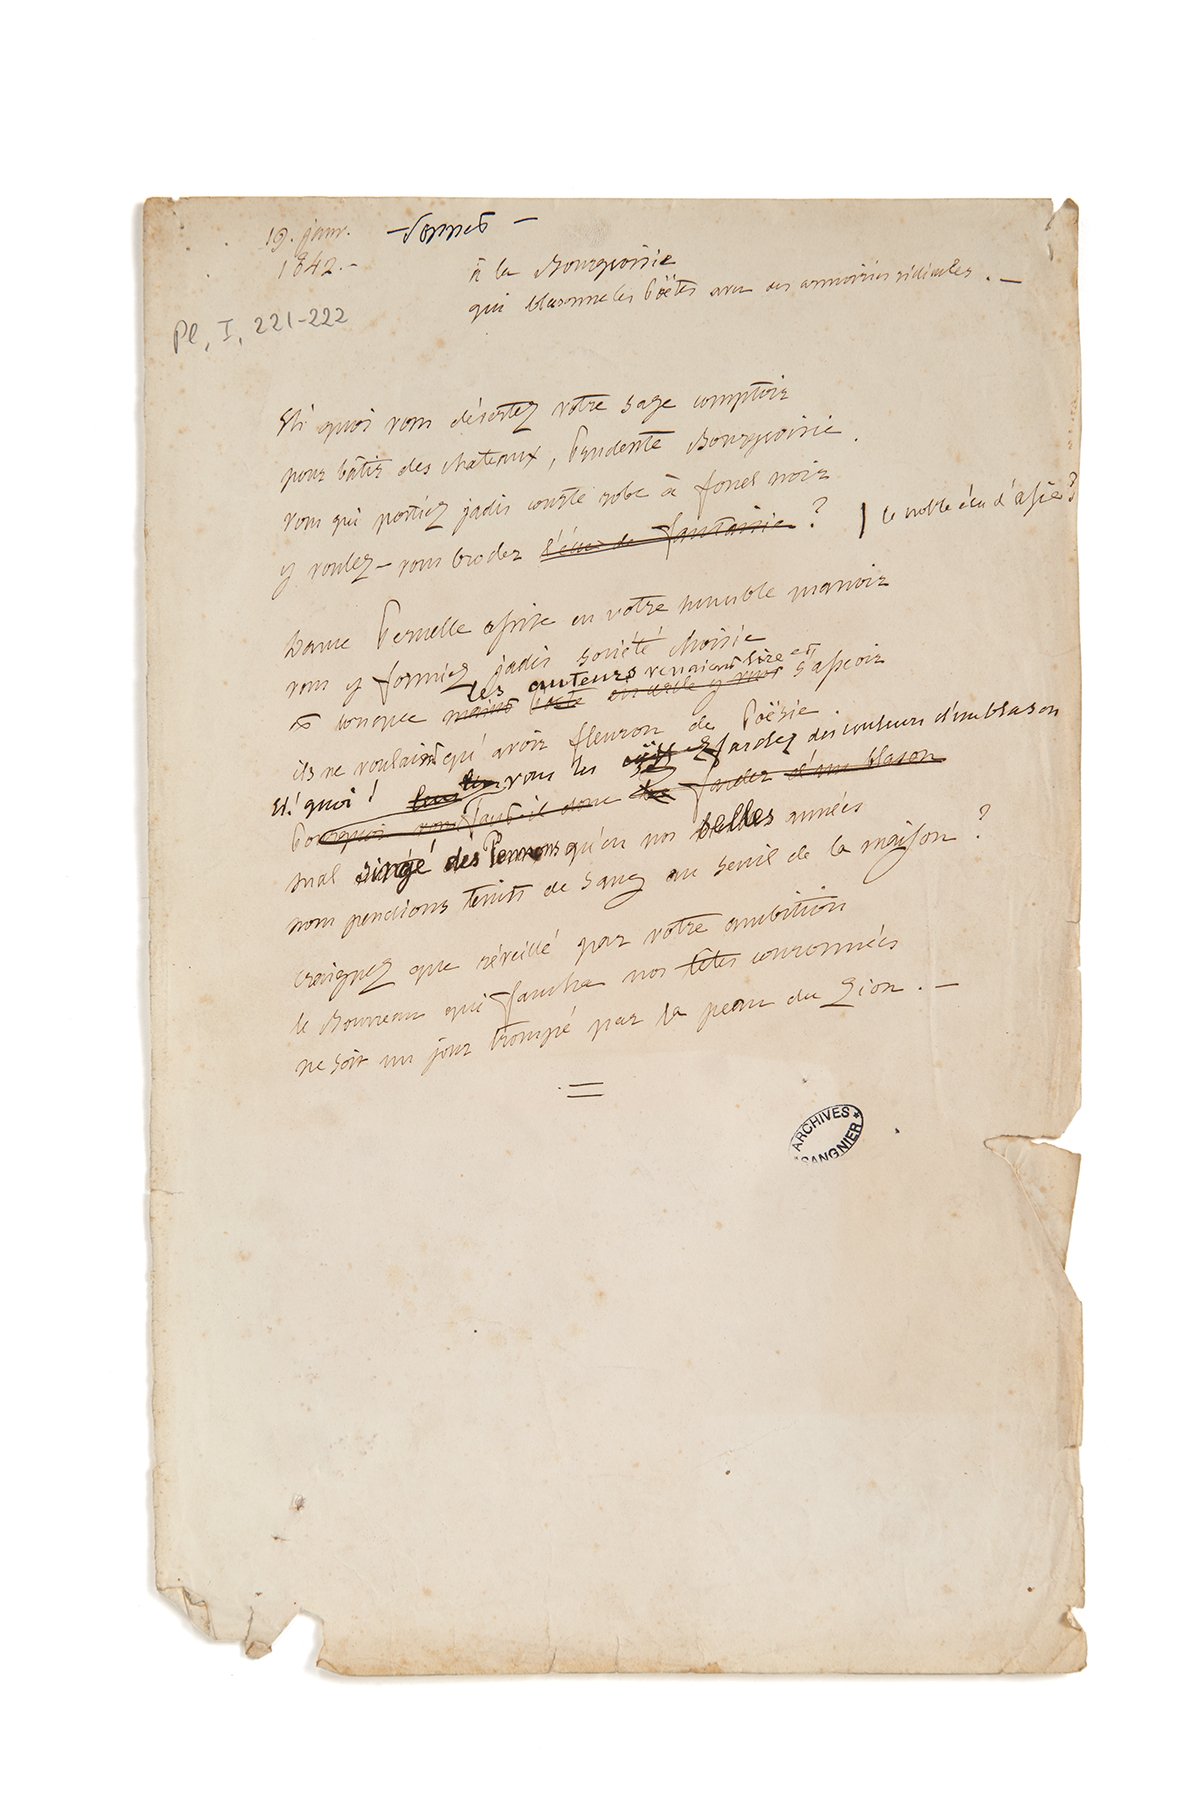 19. janv.
1842.-
- Sonnet -
à la Bourgeoisie
qui blasonne les Poëtes avec des armoiries ridicules. -
Pl, I, 221-222
Eh quoi vous désertez votre sage comptoir
pour bâtir des chateaux, Prudente Bourgeoisie.
Vous qui portiez jadis courte robe à fond noir
y voulez-vous broder l'écu de fantaisie ? | le noble écu d'Asie ?
Dame Pernelle assise en votre humble manoir
vous y formiez jadis société choisie
les auteurs venaient lire et
et lorsque maint s'asseoir
ils ne voulaient qu'avoir fleuron de Poësie.
Et quoi ! vous les fardez des couleurs d'un blason
Pourquoi vous faut-il donc les farder d'un blason
mal singé des Pennons qu'en nos belles années
nous pendions teints de sang au seuil de la maison ?
Craignez que réveillé par votre ambition
le Bourreau qui faucha nos têtes couronnées
ne soit un jour trompé par la peau du Lion. -
ARCHIVES *
SANGNIER